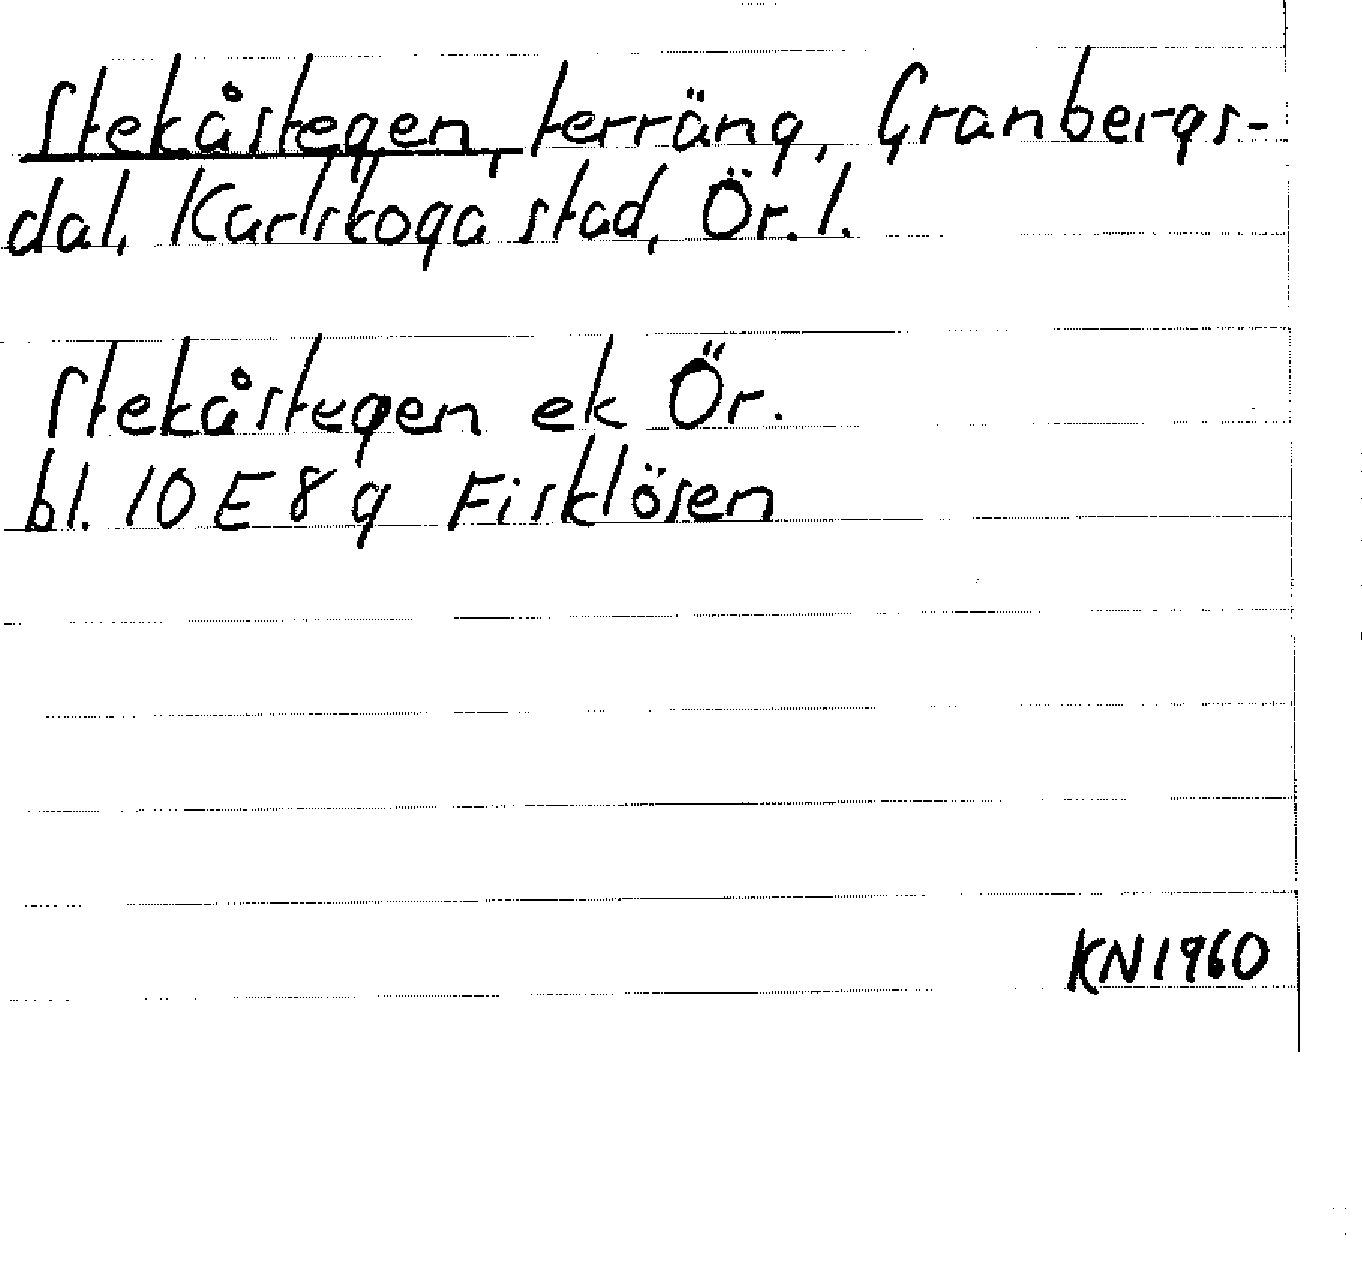 Stekåstegen, terräng, Granbergs-
dal, Karlskoga stad, Ör. l.
Stekåstegen ek Ör.
bl. 10 E 8 g Fisklösen
KN 1960